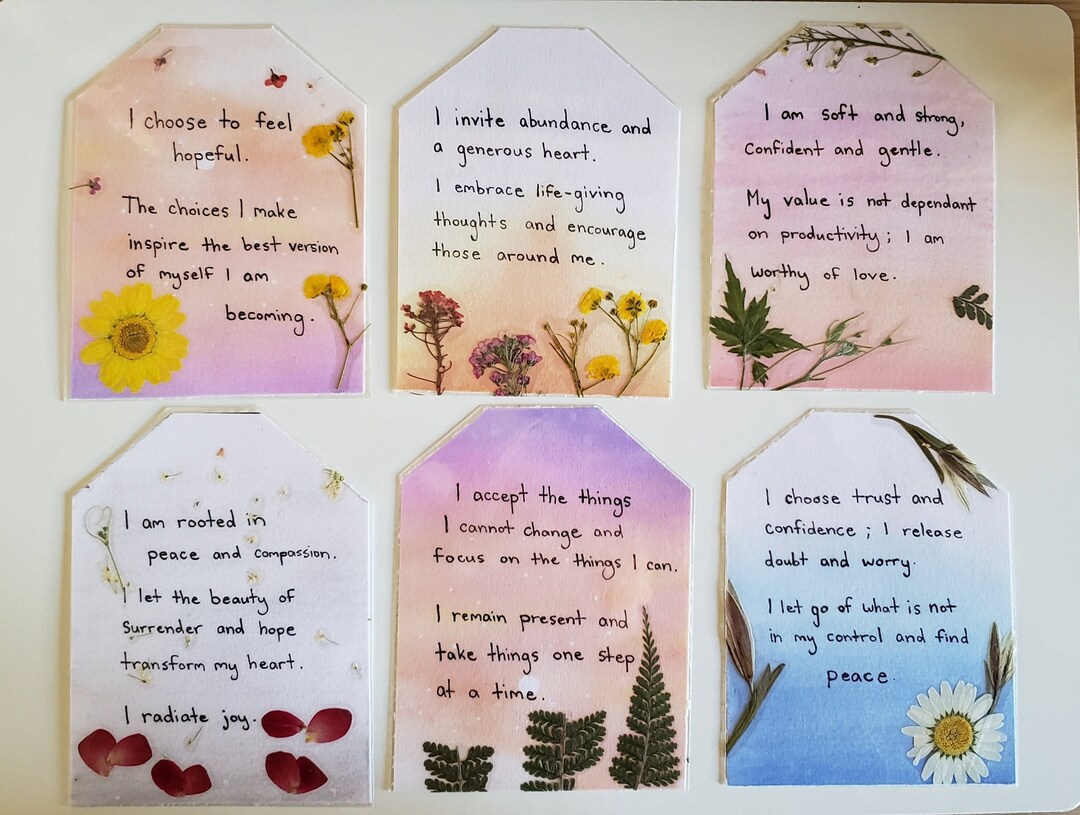 I choose to feel
hopeful.
The choices I make
inspire the best version
of myself I am
becoming.
I invite abundance and
a generous heart.
I embrace life-giving
thoughts and encourage
those around me.
I am soft and strong,
confident and gentle.
My value is not dependant
on productivity; I am
worthy of love.
I am rooted in
peace and compassion.
I let the beauty of
surrender and hope
transform my heart.
I radiate joy.
I accept the things
I cannot change and
focus on the things I can.
I remain present and
take things one step
at a time.
I choose trust and
confidence; I release
doubt and worry.
I let go of what is not
in my control and find
peace.